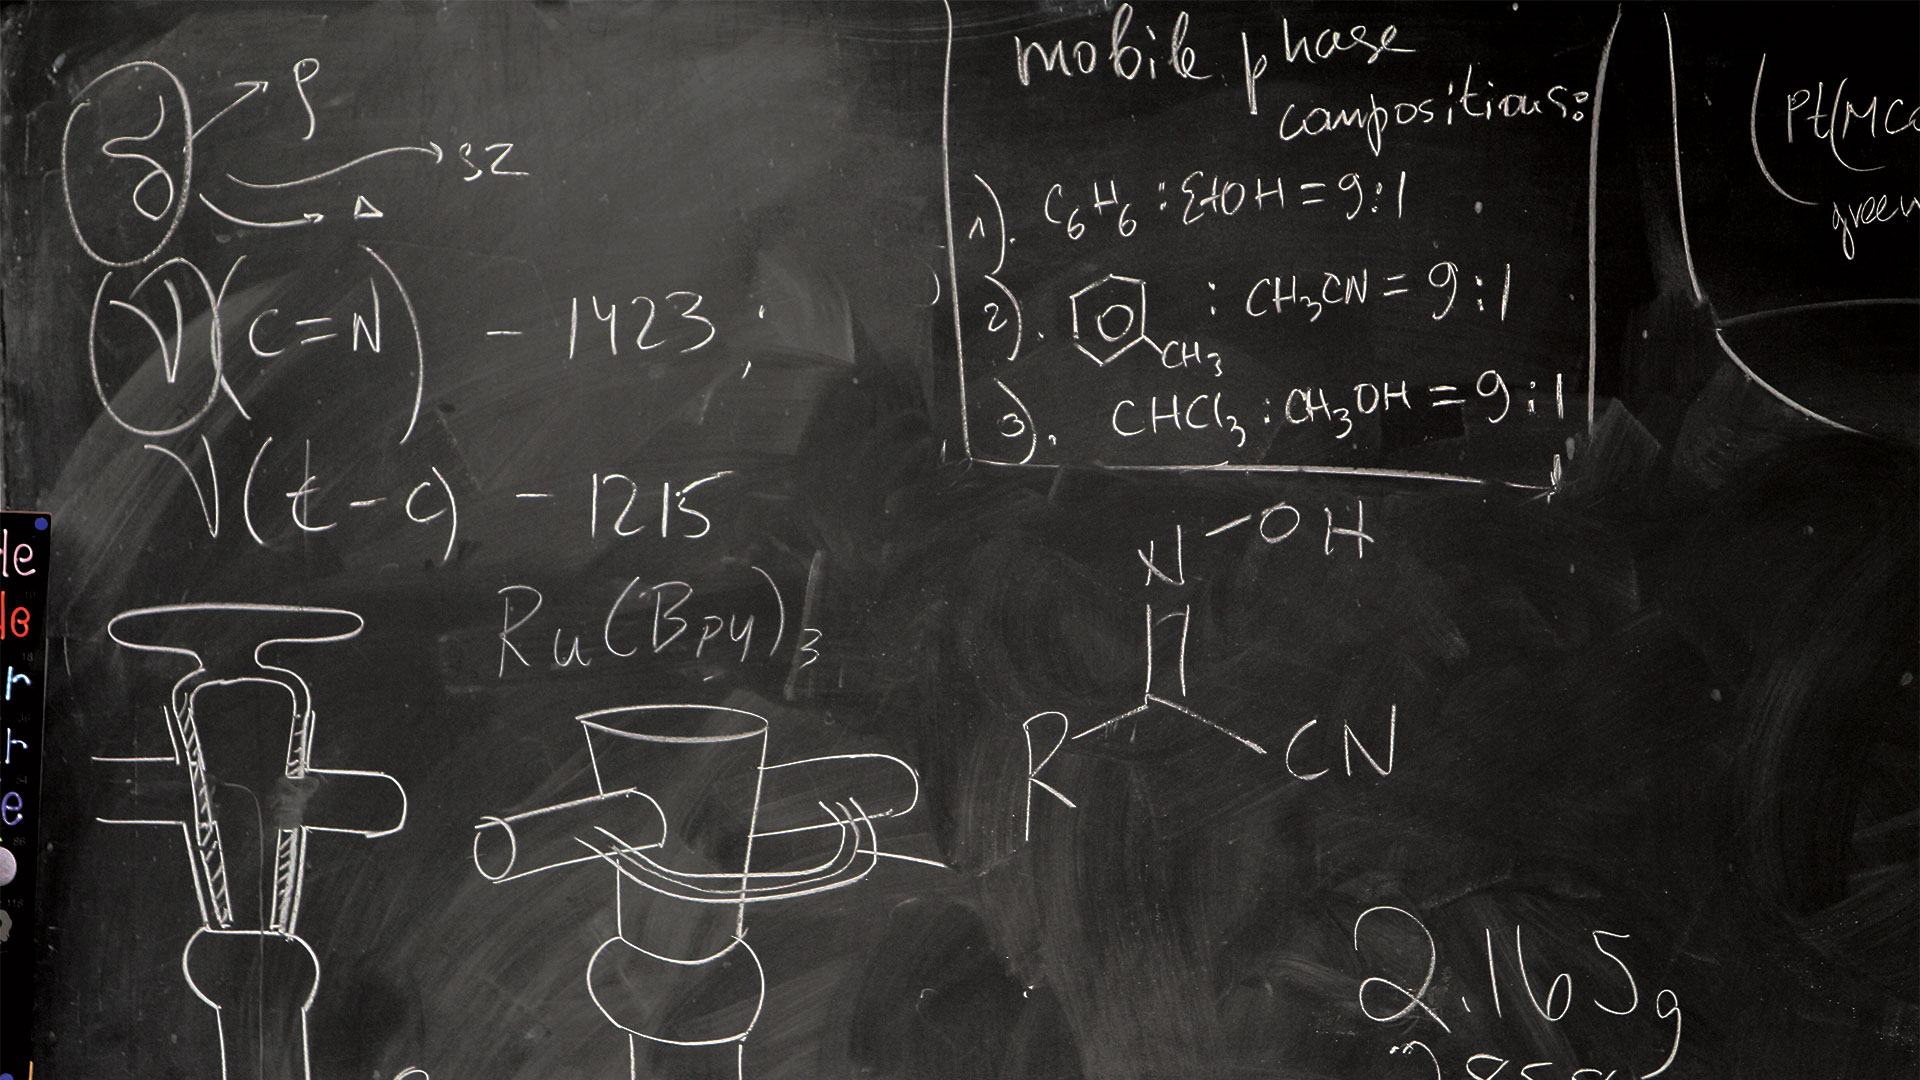 δ
ρ
SZ
Δ
ν(C=N) - 1423;
ν(t-c) - 1215
Ru(Bpy)3
mobile phase
compositions:
1). C6H6 : EtOH = 9:1
2). CH3 : CH3CN = 9:1
3). CHCl3 : CH3OH = 9:1
(Pt(MC
green
N-OH
R CN
2.165g
He
r
r
e